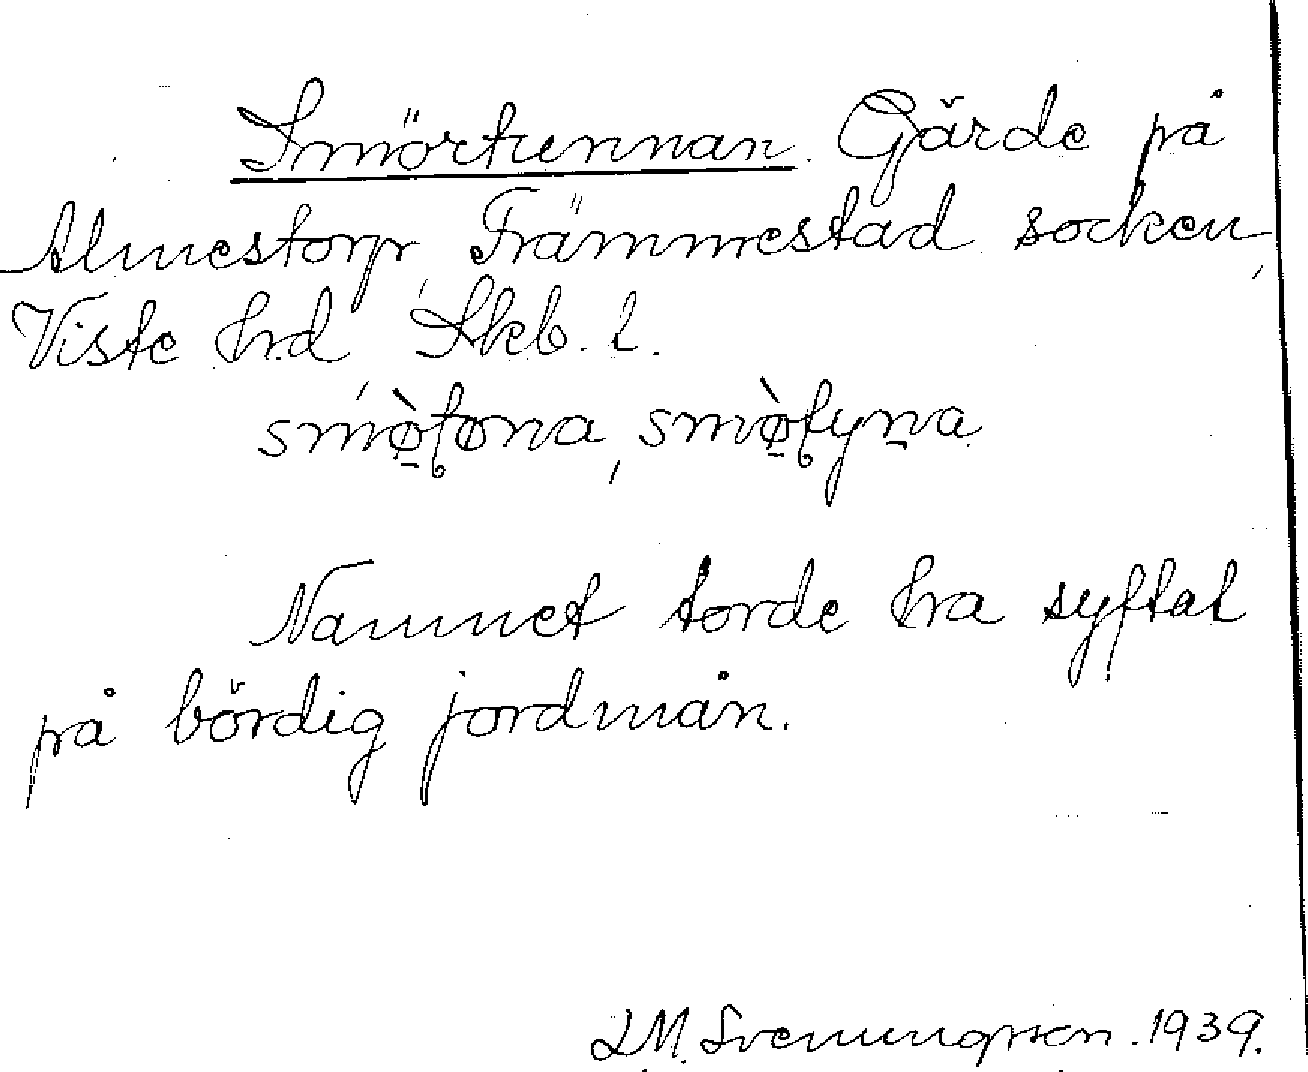 Smörtunnan. Gärde på
Almestorp, Främmestad socken,
Viste hrd, Skb. l.
Namnet torde ha syftat
på bördig jordmån.
J.M. Svenungsson. 1939.